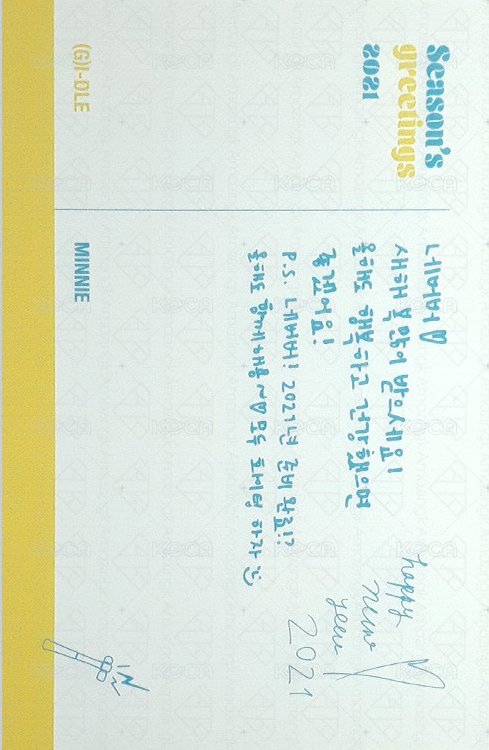 Season's
greetings
2021
네버버♡
새해 복 많이 받으세요!
올해도 행복하고 건강했으면
좋겠어요!
P.S. 네버버! 2021년 준비 완료!?
올해도 함께해용~♡ 모두 화이팅 하자
happy
new
year
2021
(G)I-DLE
MINNIE